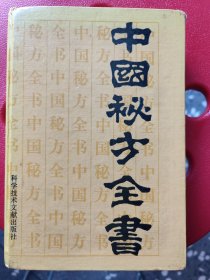 中國秘方全書
科学技术文献出版社